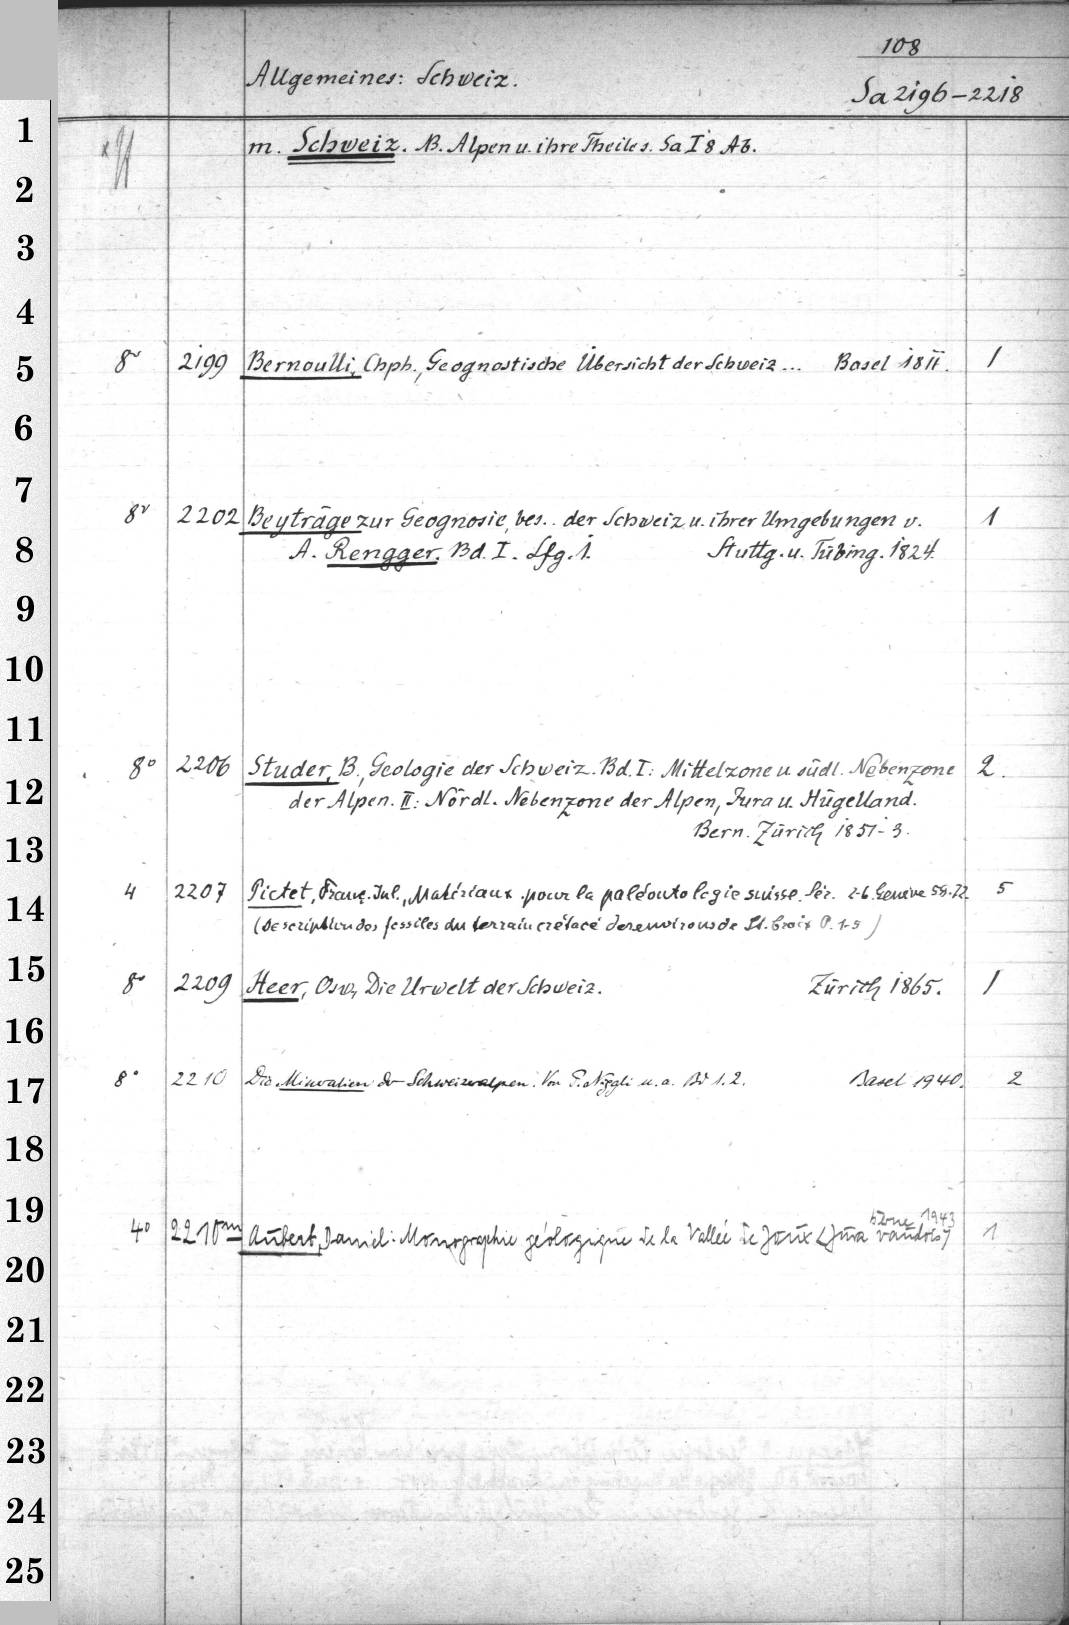 108
Allgemeines: Schweiz.
Sa 2196-2218
1
m. Schweiz. N. Alpen u. ihre Theile s. Sa I 8 Ab.
2
3
4
5
8° 2199 Bernoulli, Chph., Geognostische Übersicht der Schweiz... Basel 1811. 1
6
7
8° 2202 Beyträge zur Geognosie, bes.. der Schweiz u. ihrer Umgebungen v. 1
8
A. Rengger. Bd. I. Lfg. 1. Stuttg. u. Tübing. 1824.
9
10
11
8° 2206 Studer, B., Geologie der Schweiz. Bd. I: Mittelzone u. südl. Nebenzone 2.
12
der Alpen. II: Nördl. Nebenzone der Alpen, Jura u. Hügelland.
13
Bern. Zürich 1851-3.
4 2207 Pictet, Franç. Jul., Matériaux pour la paléontologie suisse. Sér. 2-6. Genève 58-72. 5
14
(Description des fossiles du terrain crétacé des environs de St. Croix P. 1-5)
15
8° 2209 Heer, Osw., Die Urwelt der Schweiz. Zürich 1865. 1
16
17
8° 2210 Die Mineralien der Schweizeralpen. Von P. Niggli u. a. Bd 1. 2. Basel 1940. 2
18
19
4° 2210 Aubert, Daniel: Monographie géologique de la Vallée de Joux (Jura vaudois) 1943 1
20
21
22
23
24
25